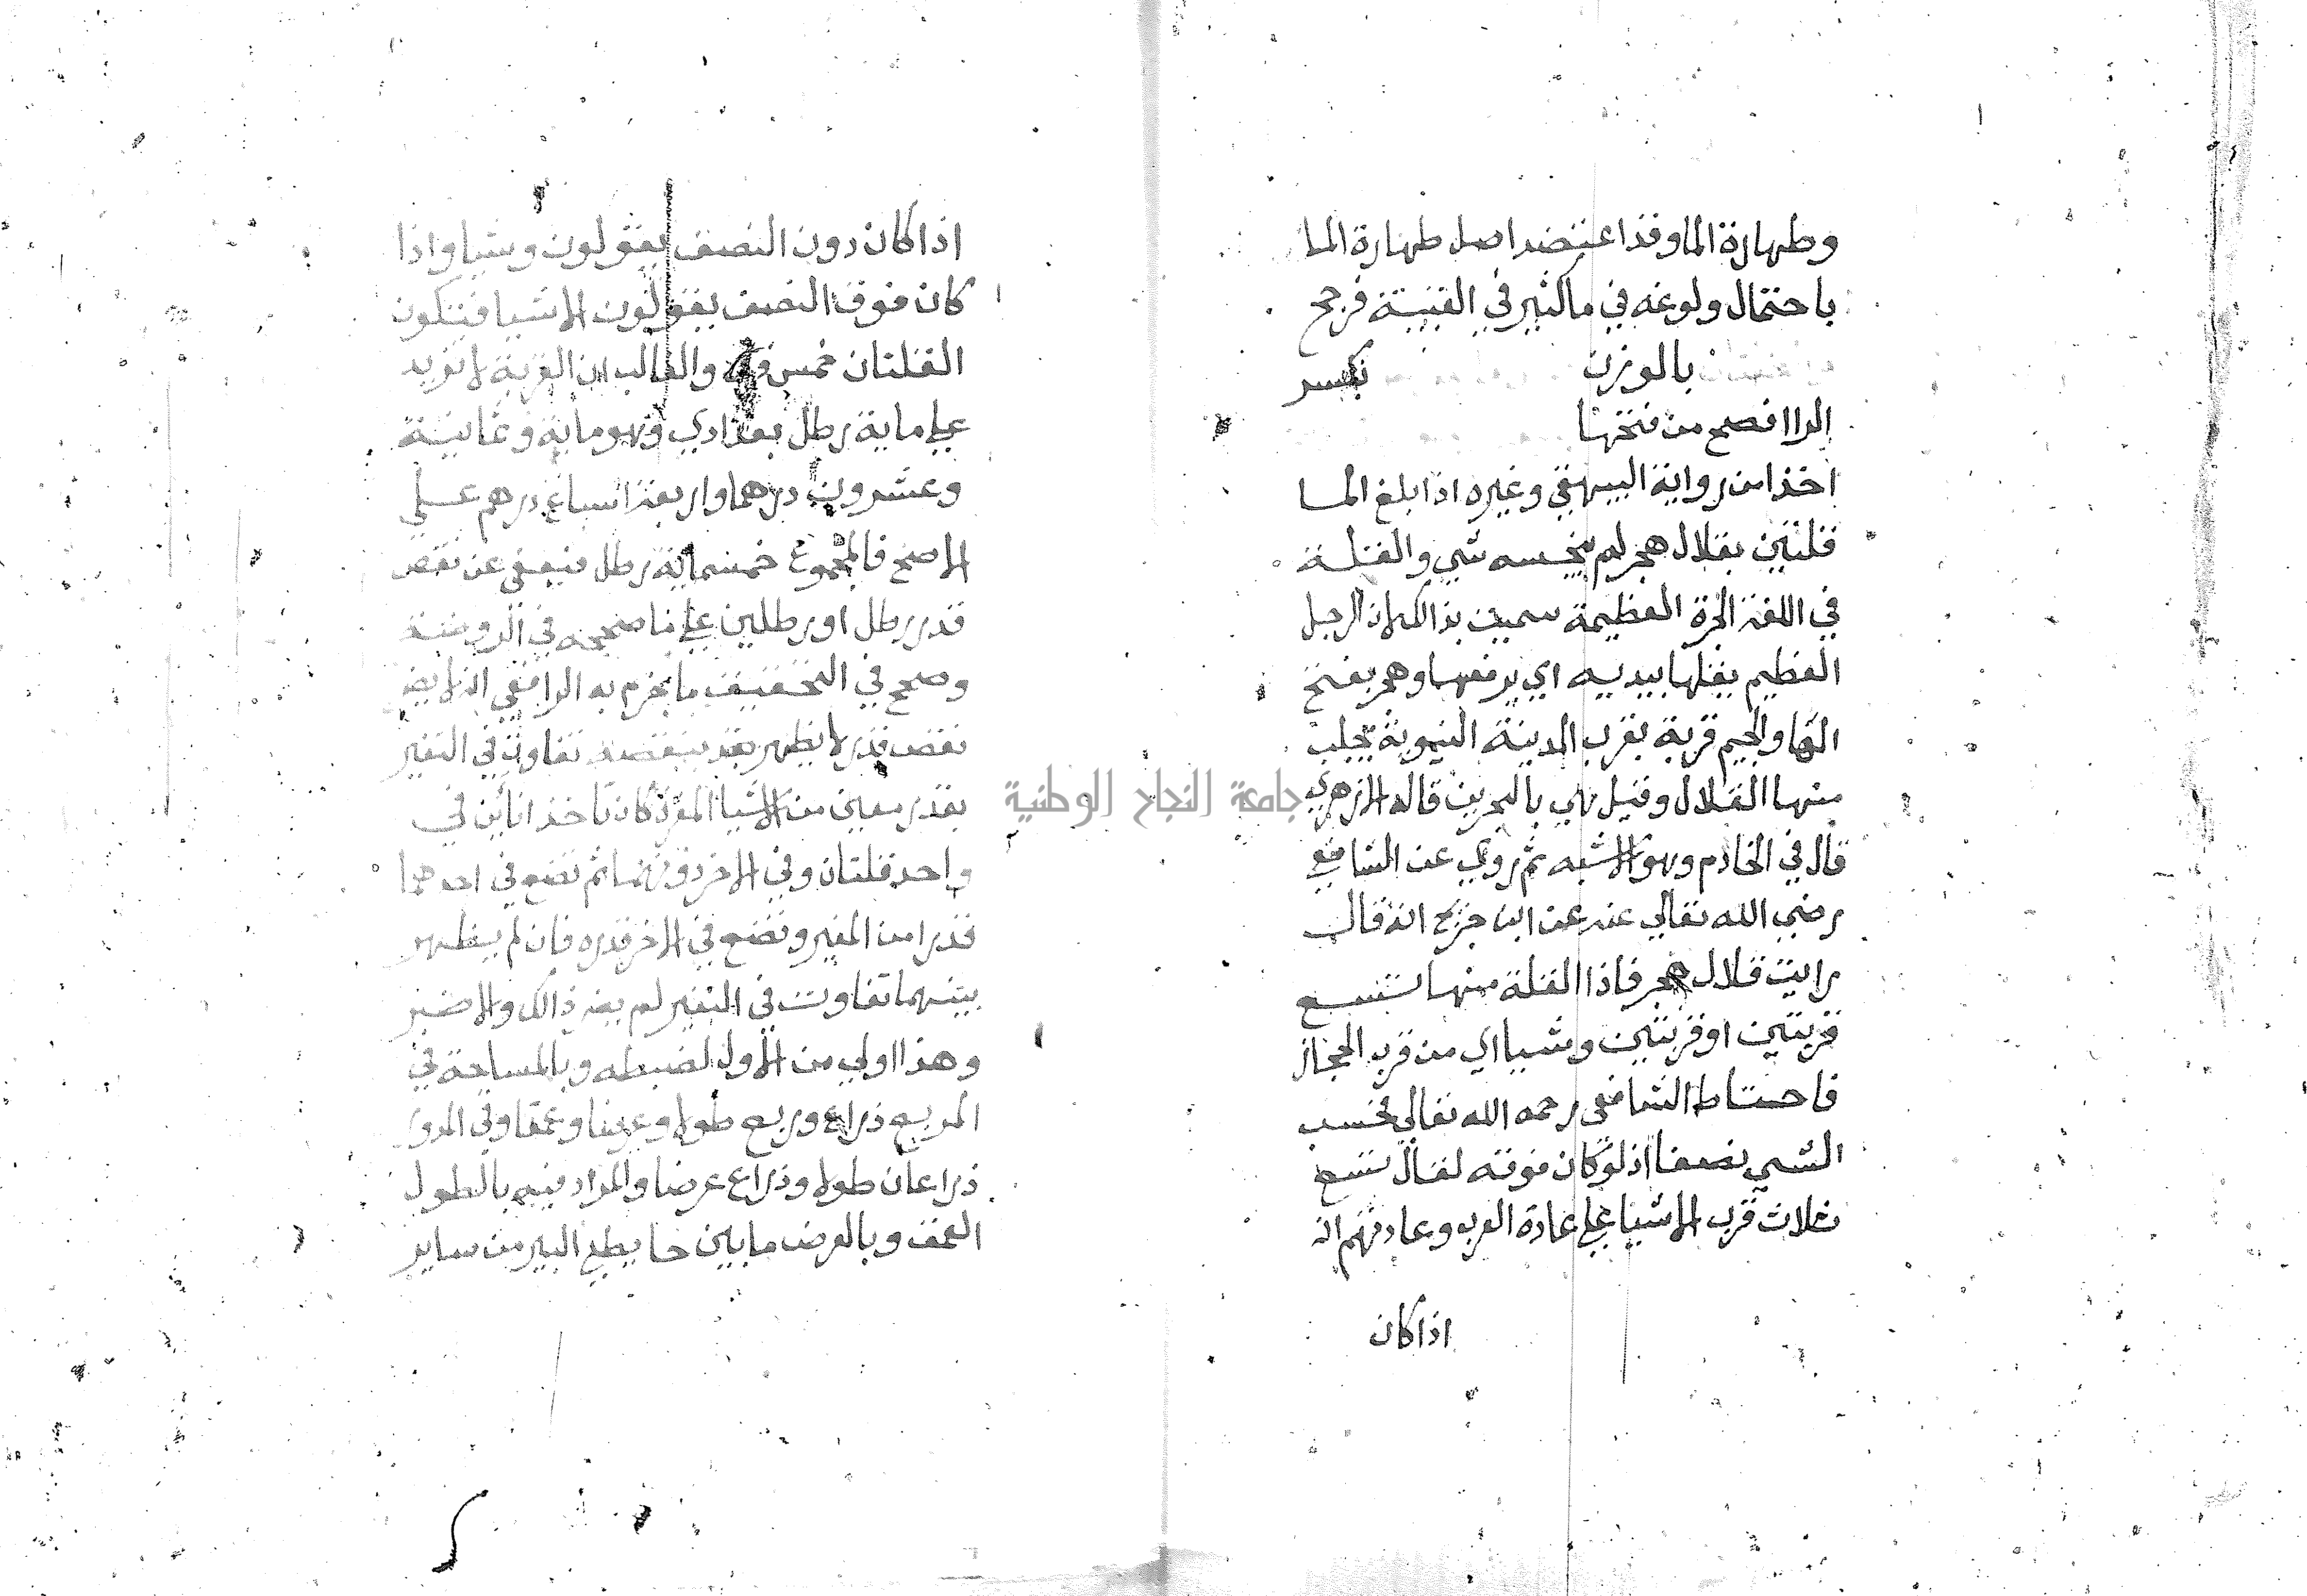 وطهارة الما وقد اعتضد اصل طهارة الما
باحتمال ولوغه في ما كثير في الغيبة فرجح
بالوزن بكسر
الرا افصح من فتحها
اخذا من رواية البيهقي وغيره اذا بلغ الما
قلتين بقلال هجر لم ينجسه شي والقلة
في اللغة الجرة العظيمة سميت بذالك لان الرجل
العظيم يقلها بيديه اي يرفعها وهجر بفتح
الها والجيم قرية بقرب المدينة النبوية يجلب
منها القلال وقيل هي بالبحرين قاله الازهري
قال في الخادم وهو الاشبه ثم روي عن الشافعي
رضي الله تعالي عنه عن ابن جريج انه قال
رايت قلال هجر فاذا القلة منها تسع
قربتين او قربتين وشيا اي من قرب الحجاز
فاحتاط الشافعي رحمه الله تعالى فحسب
الشي نصفا اذ لو كان فوقه لقال تسع
ثلاث قرب الا شيا علي عادة العرب وعادتهم انه
اذا كان
اذا كان دون النصف يقولون وشيا واذا
كان فوق النصف يقولون الا شيا فتكون
القلتان خمس قرب والغالب ان القربة لا تزيد
علي ماية رطل بغدادي وهو ماية وثمانية
وعشرون درهما واربعة اسباع درهم علي
الاصح فالمجموع خمسماية رطل فيعفي عن نقص
قدر رطل او رطلين علي ما صححه في الروضة
وصحح في التحقيق ما جزم به الرافعي انه لا يضر
نقص قدر لا يظهر بنقصه تفاوت في التغير
بقدر معين من الاشيا المغيرة كان تاخذ انائين في
واحد قلتان وفي الاخر دونهما ثم تضع في احدهما
قدرا من المغير وتضع في الاخر قدره فان لم يظهر
بينهما تفاوت في التغير لم يضر ذالك والا ضر
وهذا اولي من الاول لضبطه وبالمساحة في
المربع ذراع وربع طولا وعرضا وعمقا وفي المدور
ذراعان طولا وذراع عرضا والمراد فيه بالطول
العمق وبالعرض ما بين حايطي البير من ساير
جامعة النجاح الوطنية